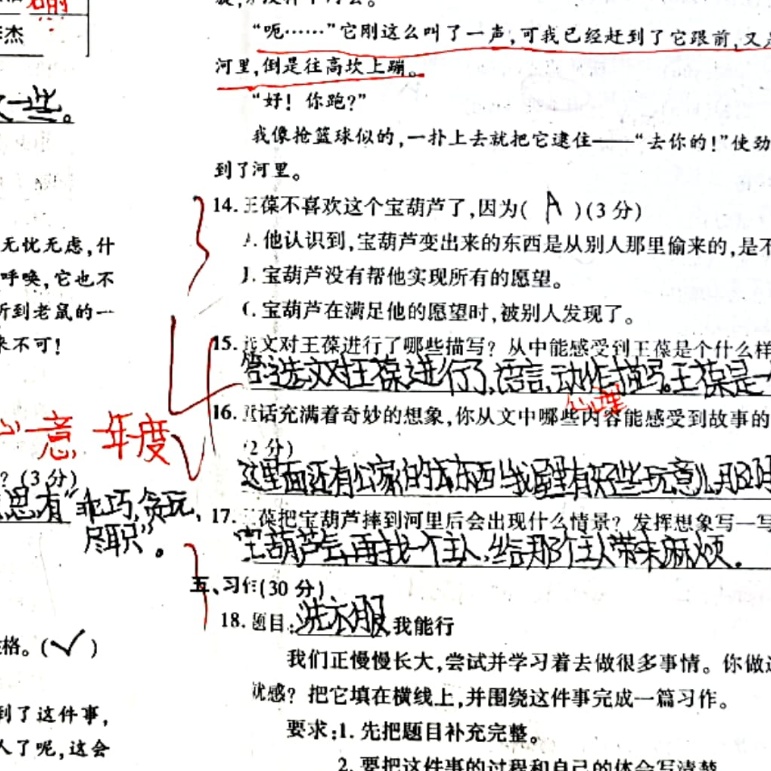 杰
一些。
无忧无虑,什
呼唤,它也不
听到老鼠的一
来不可!
心意 年度
?(3分)
思有“乖巧,贪玩,
尽职”。
格。(✓)
到了这件事,
人了呢,这会
“呃……”它刚这么叫了一声,可我已经赶到了它跟前,又
河里,倒是往高坎上蹦。
“好!你跑?”
我像抢篮球似的,一扑上去就把它逮住——“去你的!”使劲
到了河里。
14.王葆不喜欢这个宝葫芦了,因为( A )(3分)
A.他认识到,宝葫芦变出来的东西是从别人那里偷来的,是不
宝葫芦没有帮他实现所有的愿望。
C.宝葫芦在满足他的愿望时,被别人发现了。
15.选文对王葆进行了哪些描写?从中能感受到王葆是个什么样
答:选文对王葆进行了语言,动作描写。王葆是一
心理
16.童话充满着奇妙的想象,你从文中哪些内容能感受到故事的
(2分)
这里面还有公家的东西!我屋里有好些玩意儿,
17.王葆把宝葫芦摔到河里后会出现什么情景?发挥想象写一写
宝葫芦会再找一个主人,给那个主人带来麻烦。
五、习作(30分)
18.题目:洗衣服 我能行
我们正慢慢长大,尝试并学习着去做很多事情。你做
就感?把它填在横线上,并围绕这件事完成一篇习作。
要求:1.先把题目补充完整。
2.要把这件事的过程和自己的体会写清楚